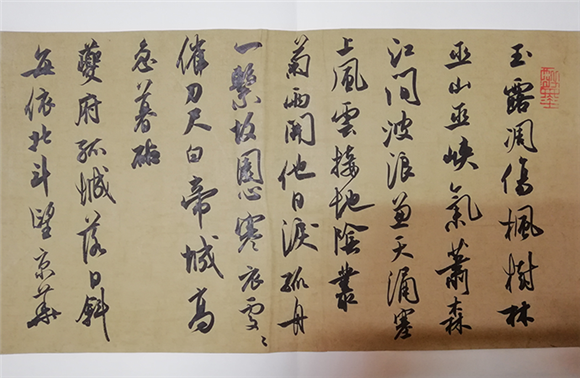 玉露凋傷楓樹林
巫山巫峽氣蕭森
江間波浪兼天涌塞
上風雲接地陰叢
菊兩開他日淚孤舟
一繫故園心寒衣處〻
催刀尺白帝城高
急暮砧
夔府孤城落日斜
每依北斗望京華